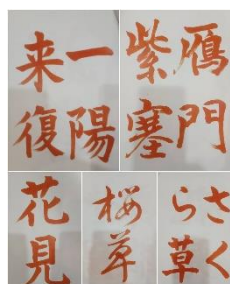 一陽
来復
雁門
紫塞
花見
桜草
さく
ら草